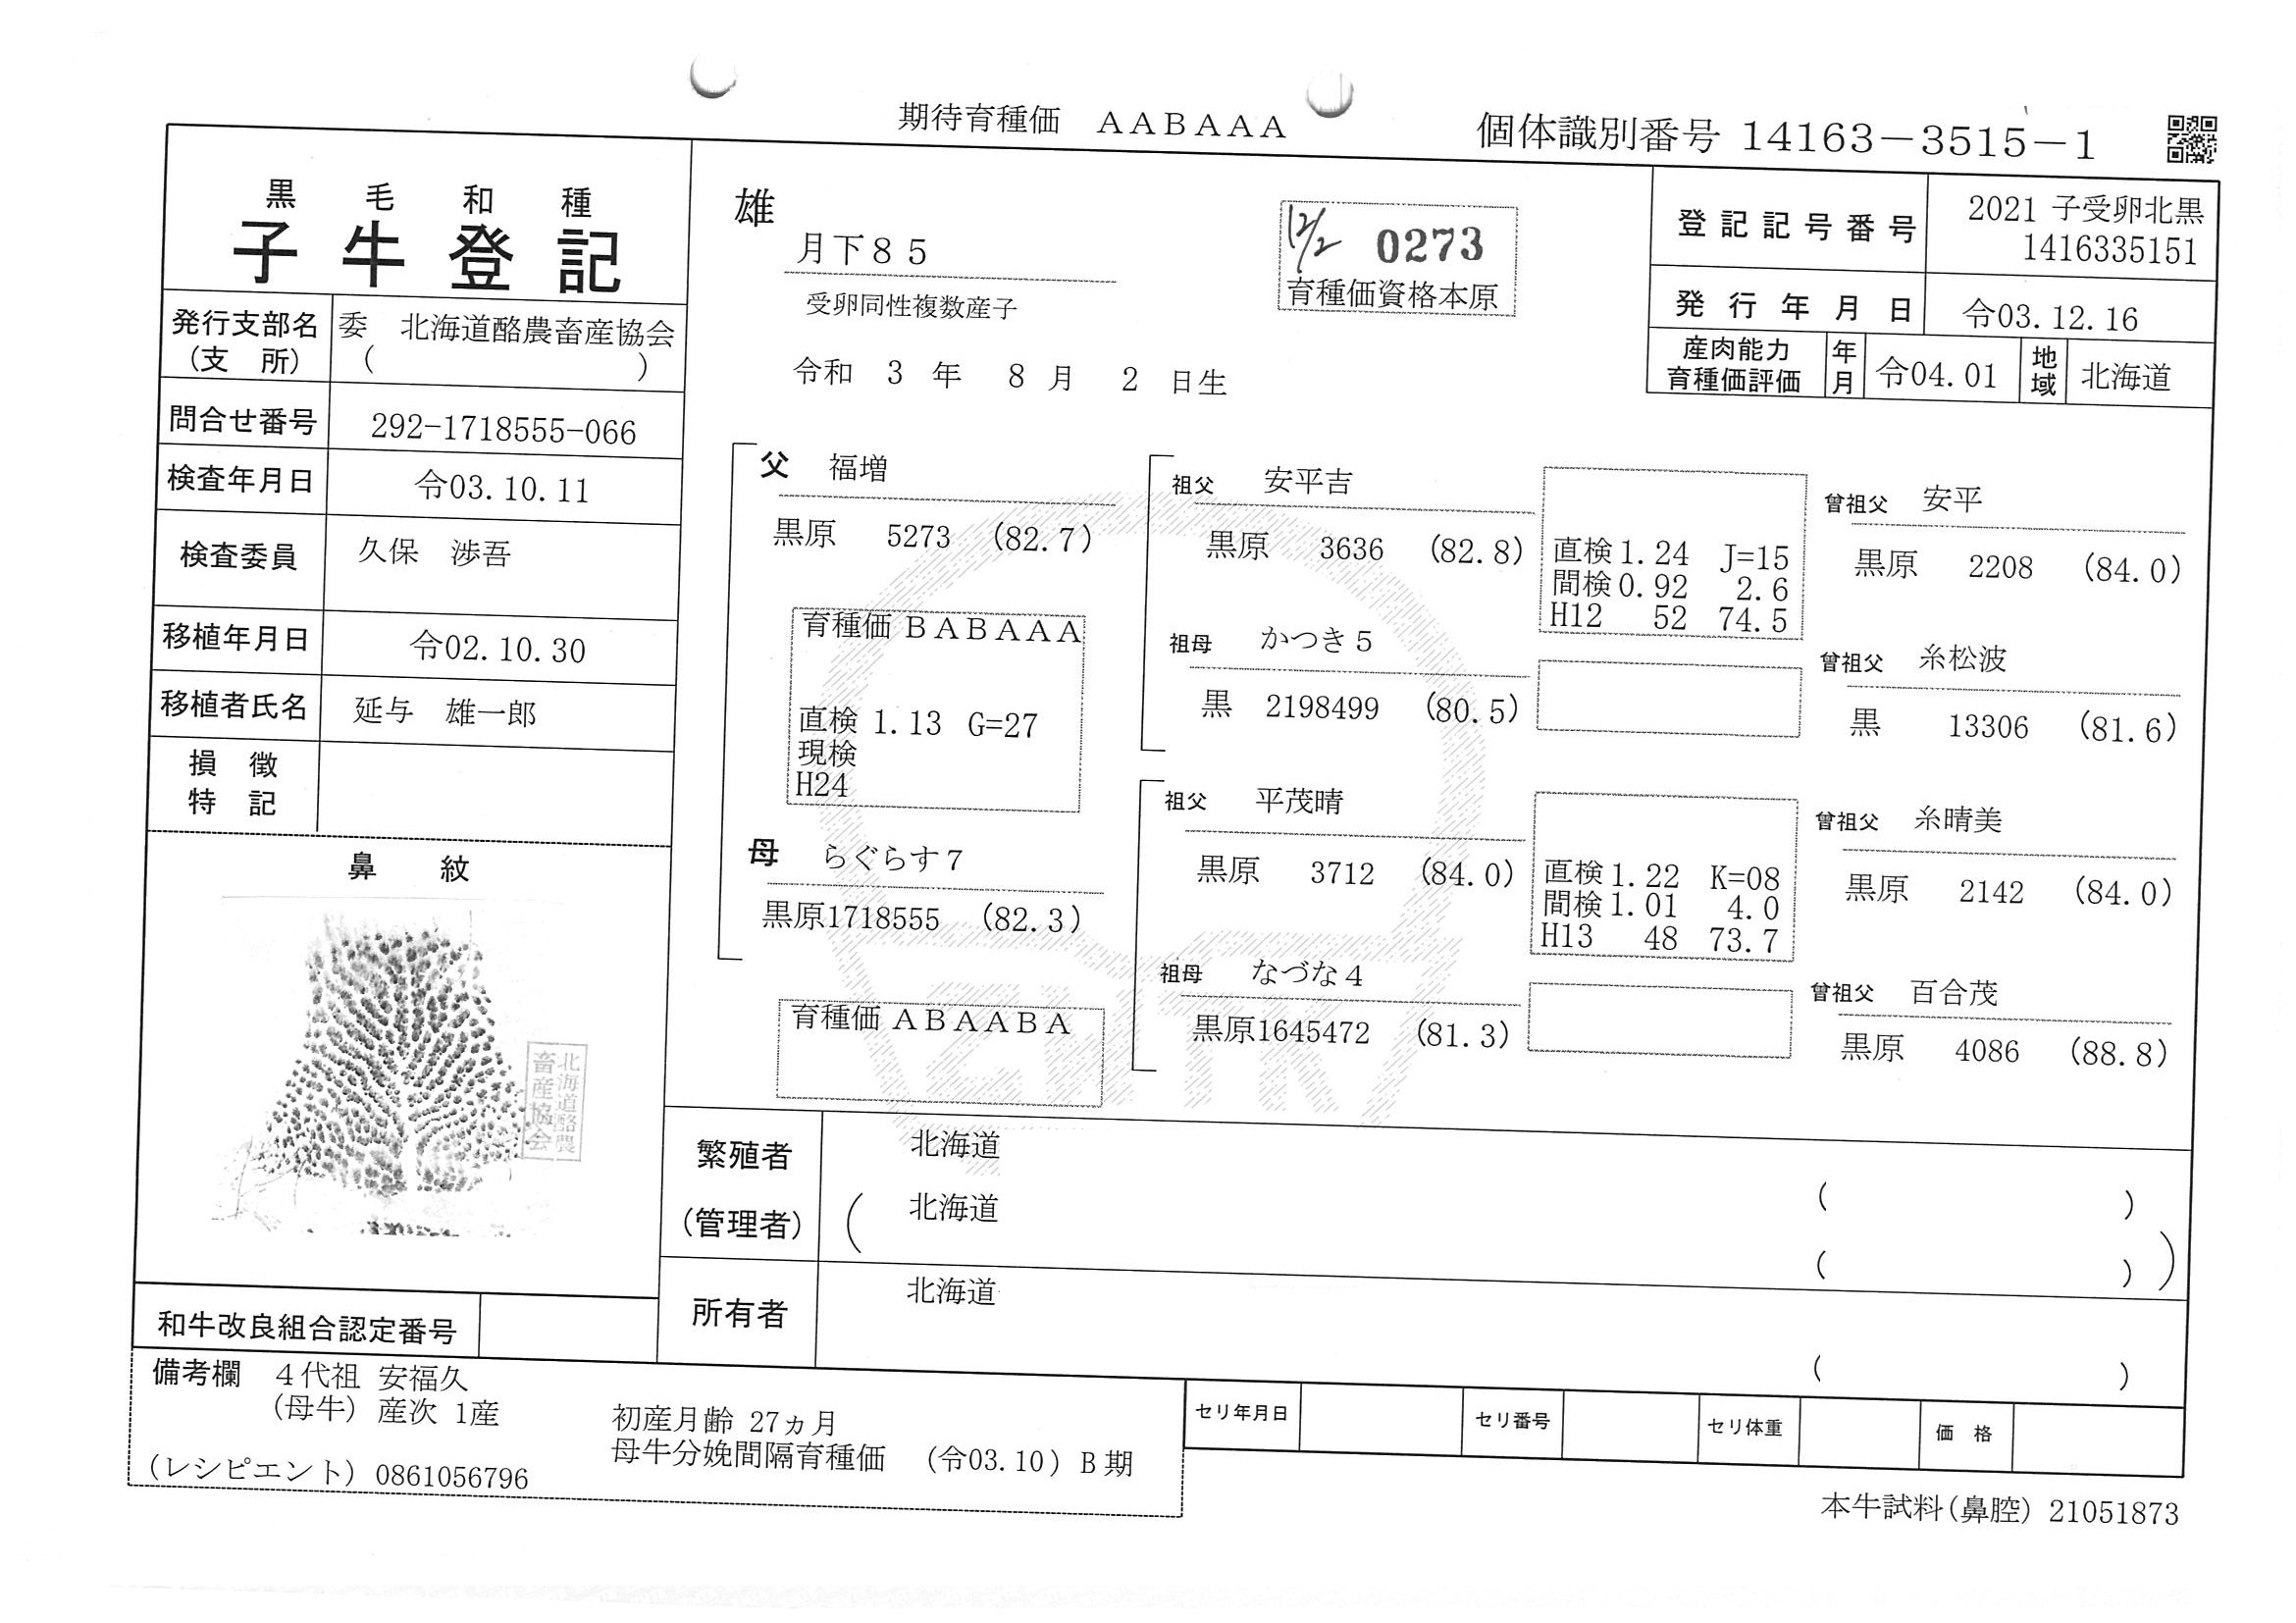 期待育種価　ＡＡＢＡＡＡ
個体識別番号 14163－3515－1
黒毛和種
子牛登記
発行支部名
(支　所)
委　北海道酪農畜産協会
(　　　)
問合せ番号
292-1718555-066
検査年月日
令03.10.11
検査委員
久保　渉吾
移植年月日
令02.10.30
移植者氏名
延与　雄一郎
損　徴
特　記
鼻　紋
北海道酪農
畜産協会
和牛改良組合認定番号
雄
月下８５
受卵同性複数産子
令和　3　年　8　月　2　日生
12/2　0273
育種価資格本原
登記記号番号
2021 子受卵北黒
1416335151
発行年月日
令03.12.16
産肉能力
育種価評価
年月
令04.01
地域
北海道
父　福増
黒原　5273　(82.7)
育種価 ＢＡＢＡＡＡ
直検 1.13　G=27
現検
H24
母　らぐらす７
黒原1718555　(82.3)
育種価 ＡＢＡＡＢＡ
祖父　安平吉
黒原　3636　(82.8)
直検1.24　J=15
間検0.92　2.6
H12　52　74.5
祖母　かつき５
黒　2198499　(80.5)
祖父　平茂晴
黒原　3712　(84.0)
直検1.22　K=08
間検1.01　4.0
H13　48　73.7
祖母　なづな４
黒原1645472　(81.3)
曾祖父　安平
黒原　2208　(84.0)
曾祖父　糸松波
黒　13306　(81.6)
曾祖父　糸晴美
黒原　2142　(84.0)
曾祖父　百合茂
黒原　4086　(88.8)
繁殖者
北海道
(　　　)
(管理者)
(　北海道
(　　　) )
所有者
北海道
(　　　)
備考欄　４代祖 安福久
(母牛) 産次 1産
初産月齢 27ヵ月
母牛分娩間隔育種価　(令03.10) Ｂ期
(レシピエント) 0861056796
セリ年月日
セリ番号
セリ体重
価　格
本牛試料(鼻腔) 21051873